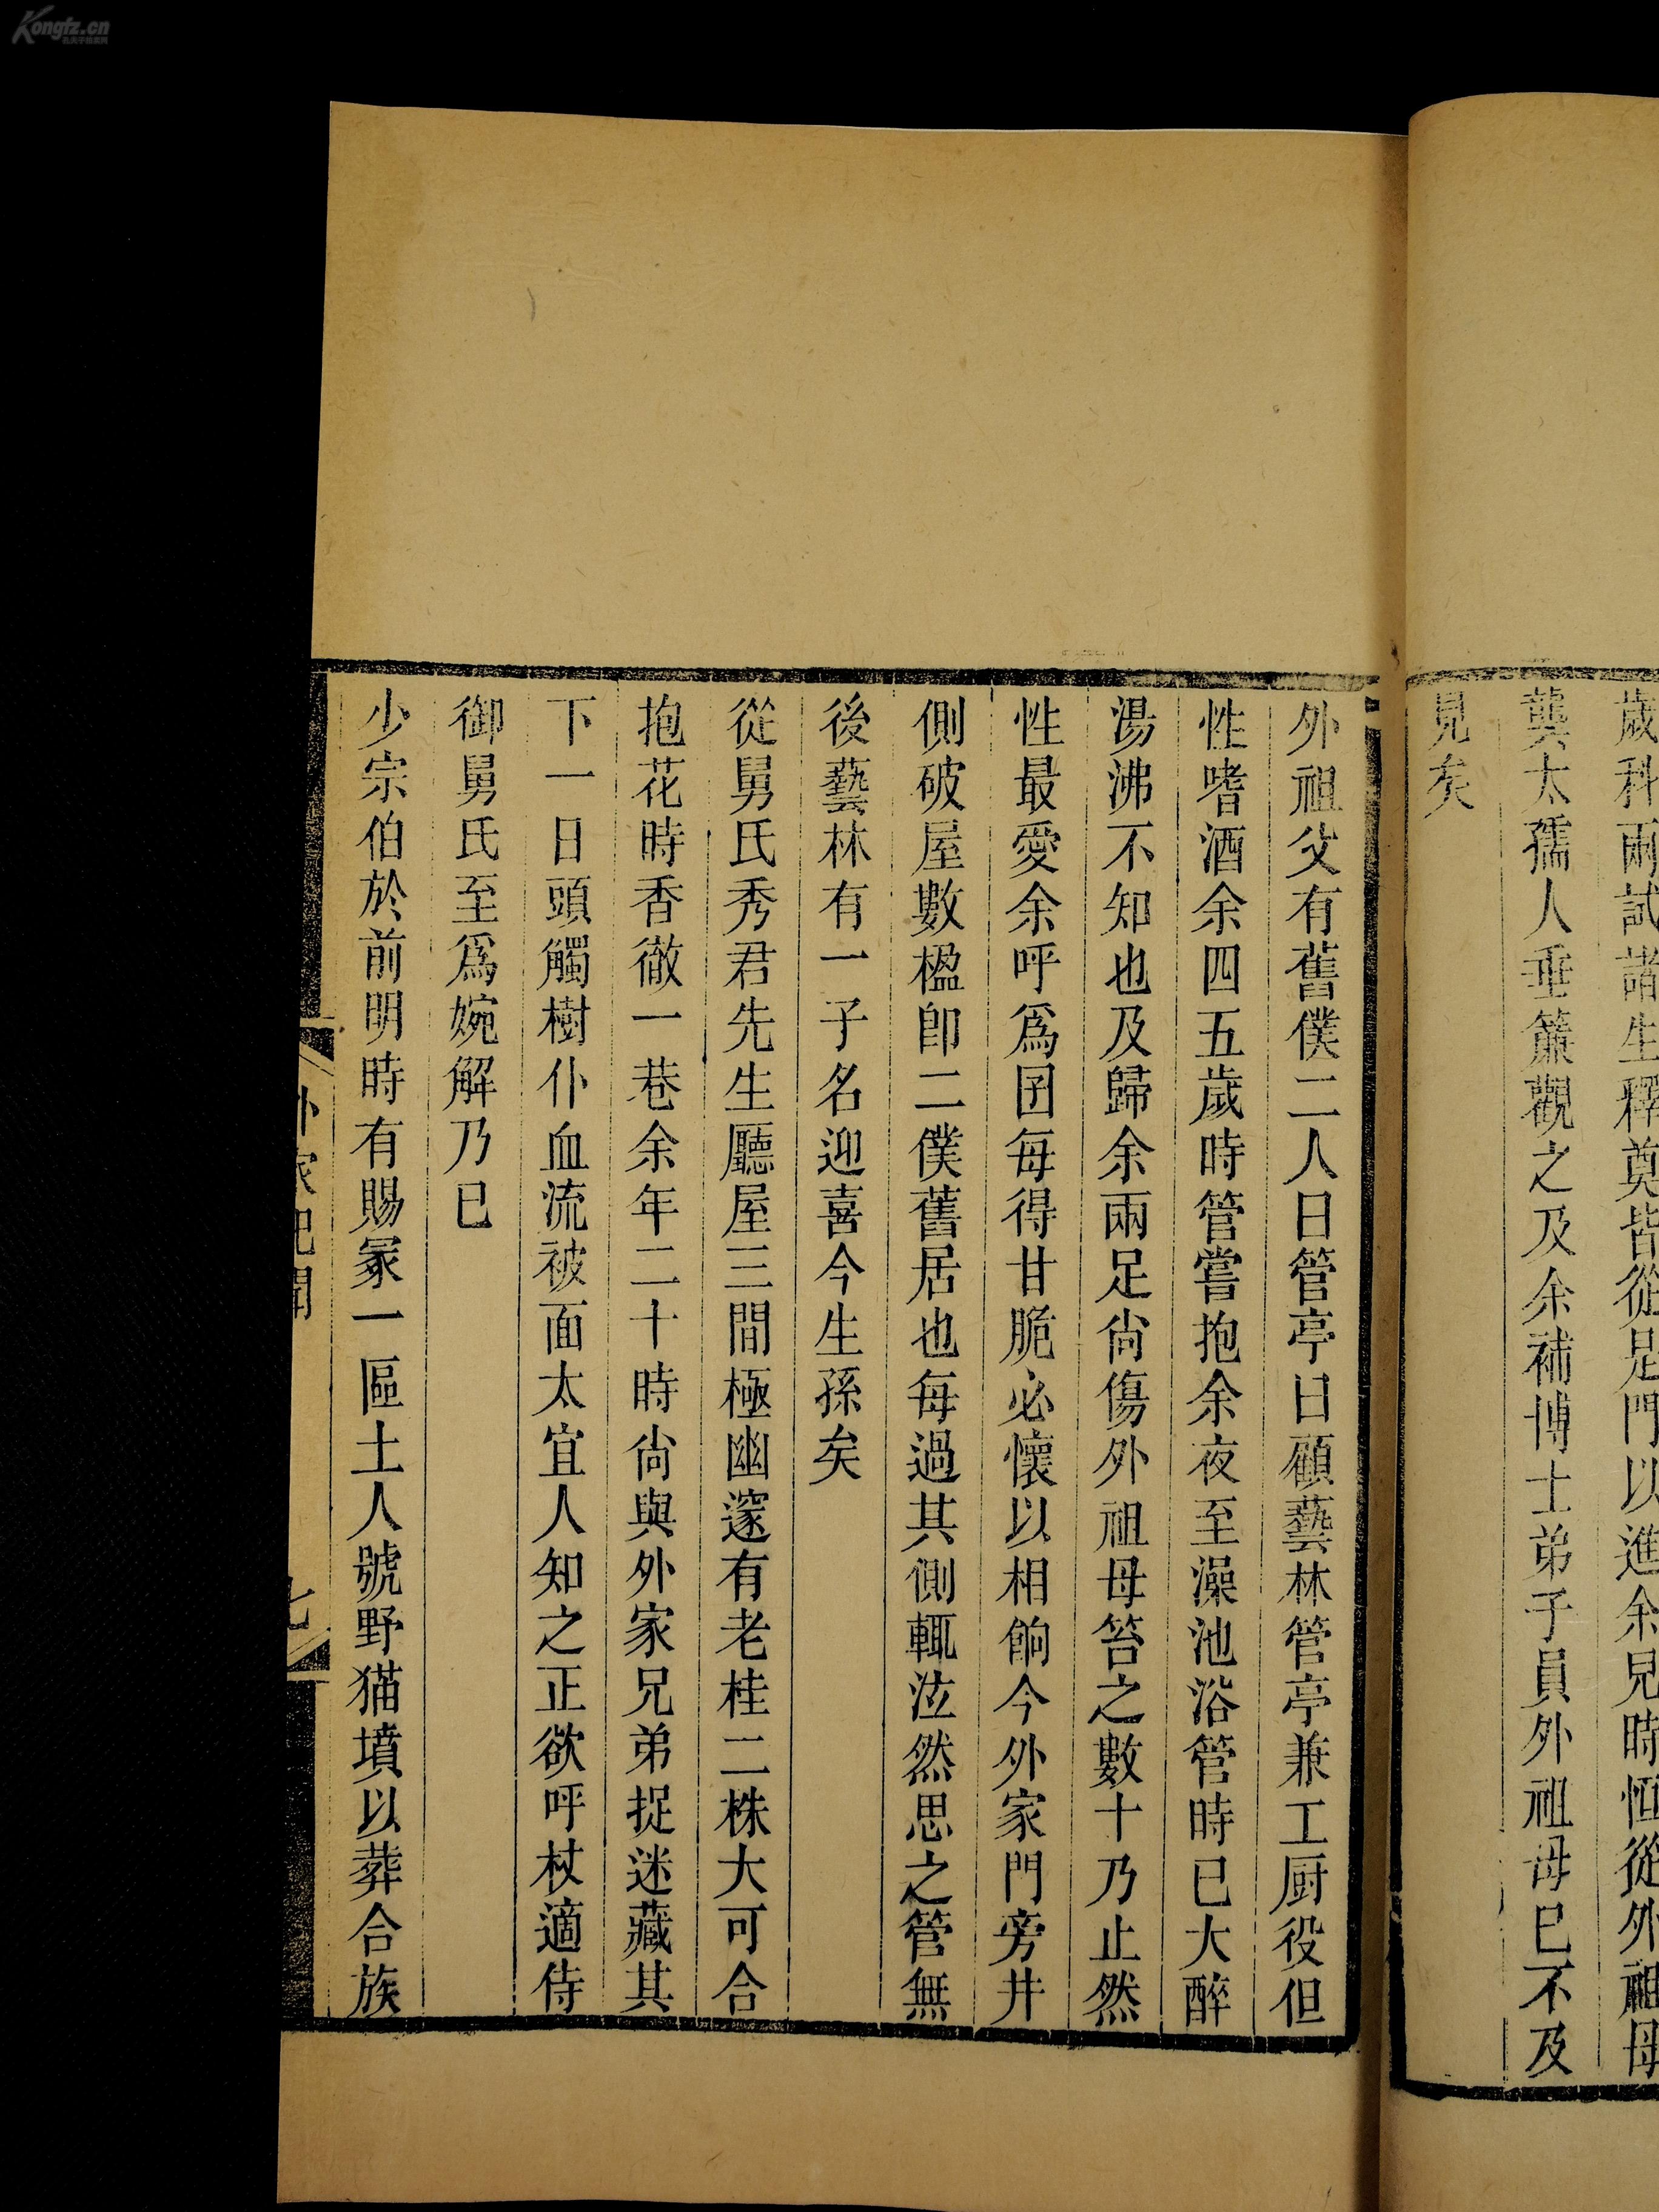 歲科兩試諸生釋奠皆從是門以進余兒時恒從外祖母
龔太孺人垂簾觀之及余補博士弟子員外祖母已不及
見矣
外祖父有舊僕二人曰管亭曰顧藝林管亭兼工厨役但
性嗜酒余四五歲時管嘗抱余夜至澡池浴管時已大醉
湯沸不知也及歸余兩足尙傷外祖母笞之數十乃止然
性最愛余呼爲囝每得甘脆必懷以相餉今外家門旁井
側破屋數楹卽二僕舊居也每過其側輒泣然思之管無
後藝林有一子名迎喜今生孫矣
從舅氏秀君先生廳屋三間極幽邃有老桂二株大可合
抱花時香徹一巷余年二十時尙與外家兄弟捉迷藏其
下一日頭觸樹仆血流被面太宜人知之正欲呼杖適侍
御舅氏至爲婉解乃已
少宗伯於前明時有賜冢一區土人號野猫墳以葬合族
外家紀聞
七
Kongfz.cn
孔夫子旧书网